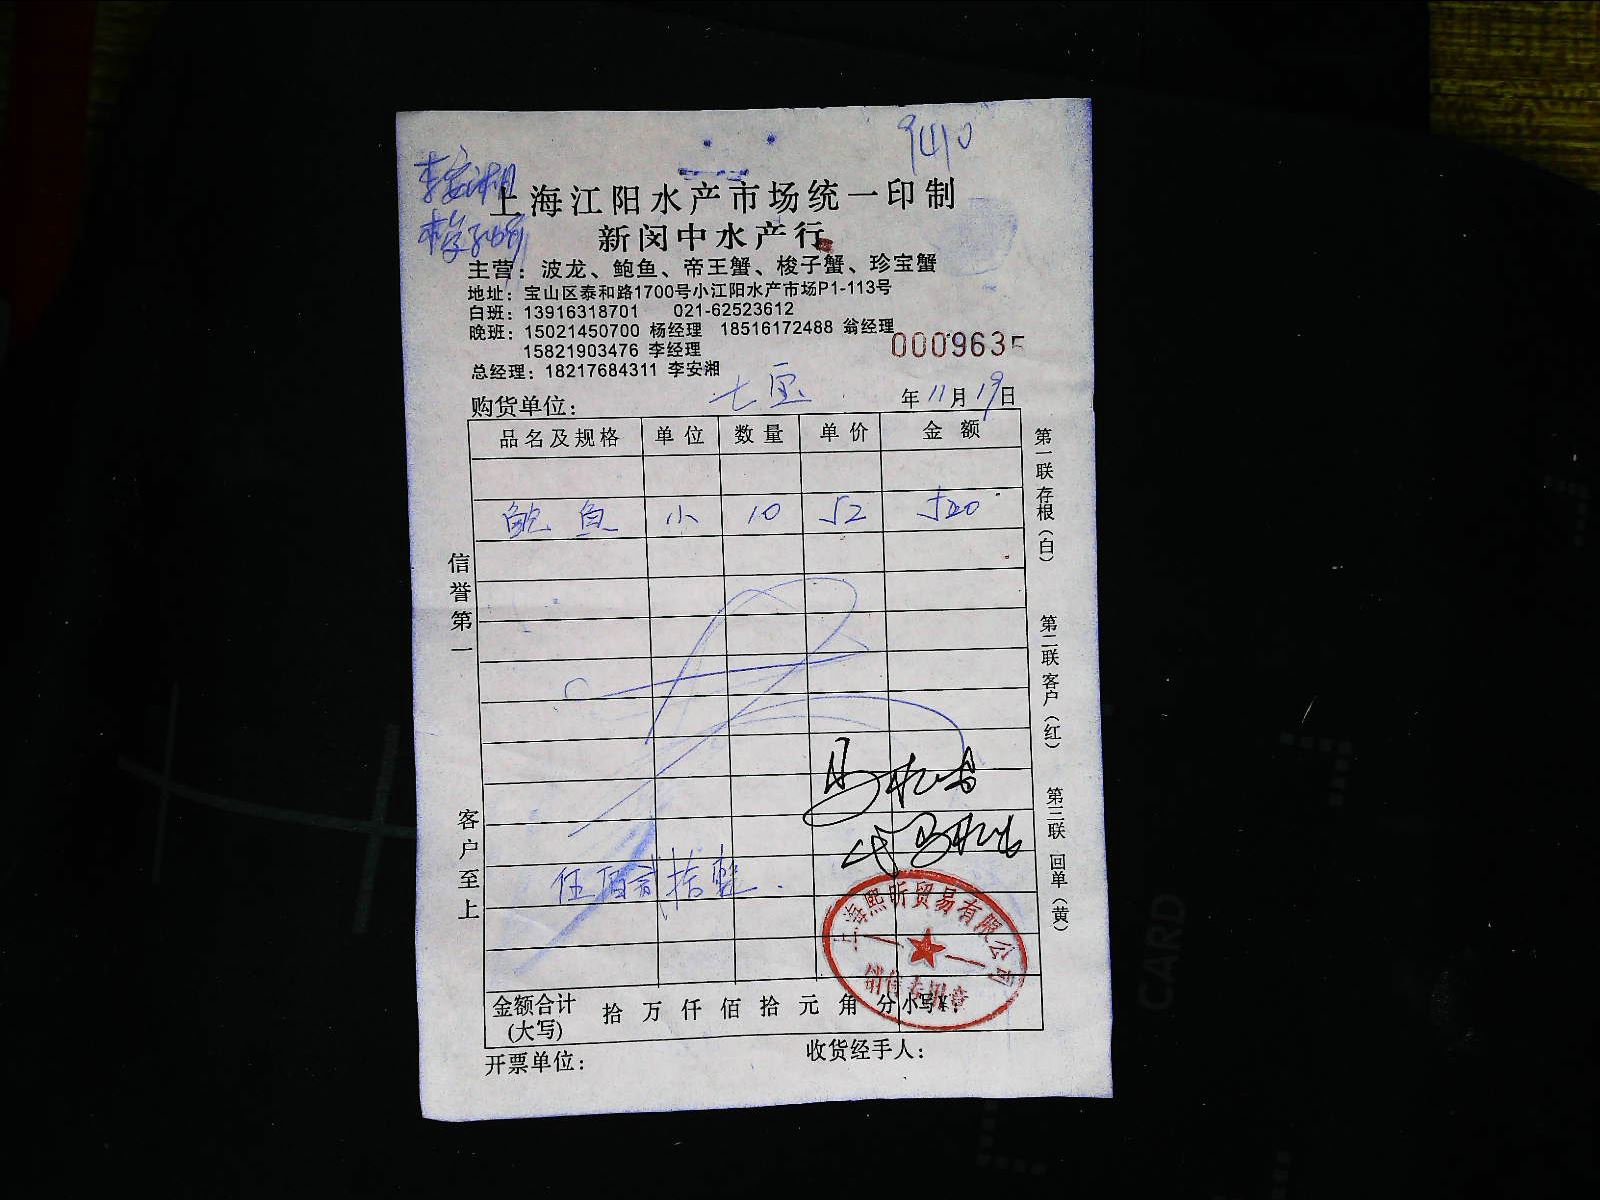 9410
李安湘
上海江阳水产市场统一印制
新闵中水产行
主营：波龙、鲍鱼、帝王蟹、梭子蟹、珍宝蟹
地址：宝山区泰和路1700号小江阳水产市场P1-113号
白班：13916318701 021-62523612
晚班：15021450700 杨经理 18516172488 翁经理
15821903476 李经理
0009635
总经理：18217684311 李安湘
购货单位： 七宝 年 11 月 19 日
品名及规格 单位 数量 单价 金额
鲍鱼 小 10 52 520
伍佰贰拾整
金额合计(大写) 拾 万 仟 佰 拾 元 角 分 小写¥：
开票单位： 收货经手人：
信誉第一
客户至上
第一联 存根（白）
第二联 客户（红）
第三联 回单（黄）
上海熙昕贸易有限公司